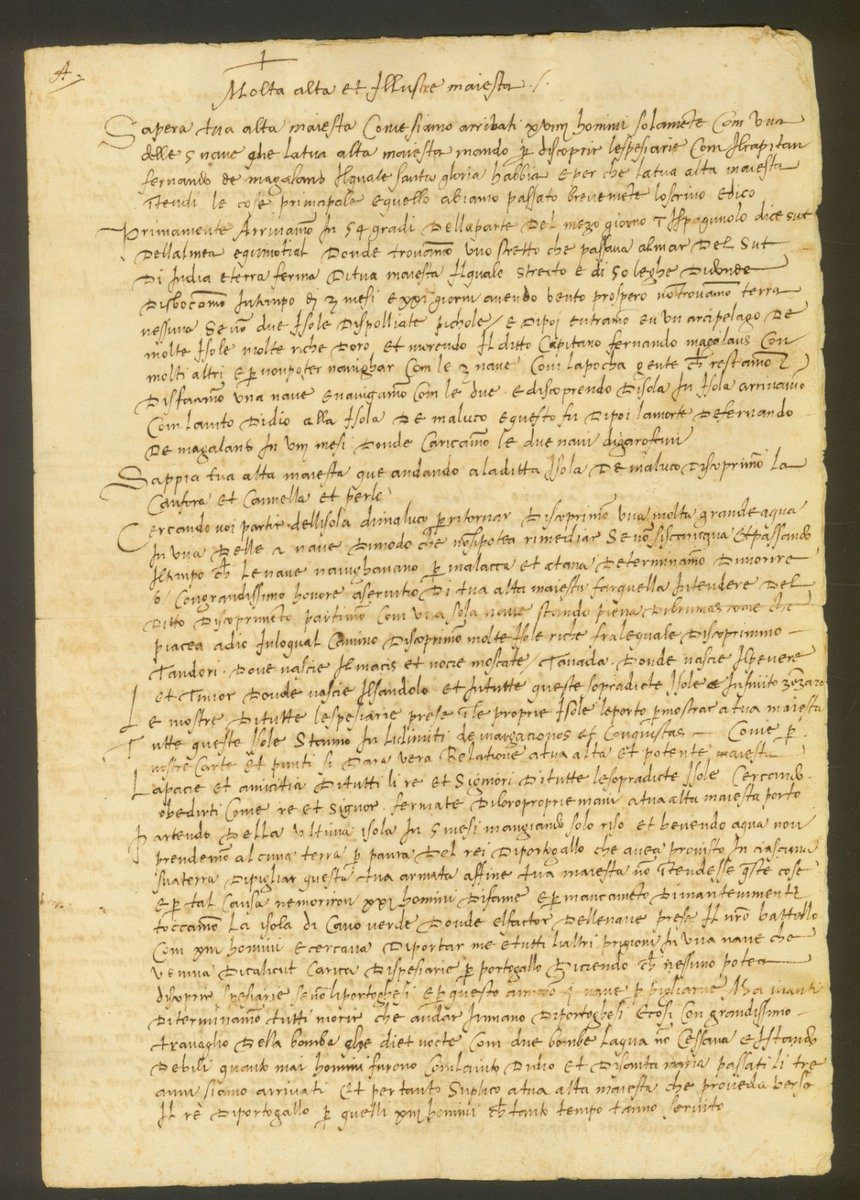 A.
Molta alta et Illustre maiesta ./
Sapera tua alta maiesta Come siamo arribati xviij homini solamēte Com Una
delle 5 nave que la tua alta maiesta mando p discoprir lespesiarie Com Il capitan
fernando de magalans Il quale santa gloria habbia e per che la tua alta maiesta
Itendi le cose principale e quello abiamo passato brevemēte lo scrivo e dico
Primamente Arrivamo In 54 gradi Della parte Del mezo giorno I Ispagnuolo dice sut
Dellalinea equinotial Donde trovamo uno stretto che passava al mar Del Sut
Di India e terra ferma Di tua maiesta Il quale strecto e di 50 leghe Di donde
Disbocamo In tenpo di 3 mesi e xxi giorni avendo vento prospero nō trovamo terra
nessuna Se nō due Isole Dispolliate pichole / e Dipoi entramo en un arcipelago De
molte Isole molte riche Doro et murendo Il ditto Capitano fernando magalans Con
molti altri e p non poter navighar Com le 3 nave Com la pocha gente ch restamo
Disfacamo una nave e navigamo Com le due e discoprendo Di sola In Isola arrivamo
Com lauto Didio alla Isola De maluco e questo fu Dipoi la morte De fernando
De magalans In mesi Donde Caricamo le due navi di garofani
Sappia tua alta maiesta que andando a la ditta Isola De maluco Discoprimo La
Canfora et Cannella et perle
Cercando noi partir dellisola di maluco p ritornar Discoprimo Una molta grande aqua
In una Delle 2 nave Di modo che nō si potea rimediar Se nō si scaricqua et passando
Il tenpo ch le nave navighavano p malacca et Determinamo Di morire
o Con grandissimo honore a servitio Di tua alta maiesta far quella Intendere Del
Ditto Discoprimēto partimo Com Una sola nave stando piena Di brumas come che
piacea a dio In lo qual Camino Discoprimo molte Isole riche fra le quale Discoprimmo
Dove nascie Il macis et noce moscate / Donde nascie Il pevere
et Timor Donde nascie Il sandolo et In tutte queste sopradicte Isole e Infinito
Le mostre Di tutte le spesiarie prese I le proprie Isole le porto p mostrar a tua maiesta
Tutte queste Isole Stanno In li limiti de Come p
nostre Carte et punti si Dara vera Relatione a tua alta et potente maiesta
La pacie et amicitia Di tutti li re et Signori Di tutte le sopradicte Isole Cercando
obedirti Come re et Signor fermate Di loro proprie mani a tua alta maiesta porto
Partendo Della Ultima isola In 5 mesi mangiando solo riso et bevendo aqua non
prendemo alcuna terra p paura Del rei Di portogallo che avea provisto In ciascuna
sua terra Di pigliar questa tua armata affine tua maiesta nō Itendesse qste cose
e p tal Causa ne morirono xxi homini Di fame e p mancamēto Di mantenimenti
toccamo La isola di Cavo verde Donde el factor Delle nave prese Il nro battello
Com xiij homini e cercava Di portar me e tutti li altri prigioni In una nave che
veniva Di calicut Carica Di spesiarie p portogallo Dicendo ch nessuno potea
discoprir spesiarie se nō li portoghesi e p questo armano 4 nave p pigliarne Ma
Diterminamo tutti morir che andar In mano Di portoghesi E cosi Con grandissimo
travaglio Della bomba que di et nocte Com due bombe laqua nō Cessava e Istando
Debili quanto mai homini furono Com lauto Didio et Di santa maria passati li tre
anni siamo arrivati Et per tanto Suplico a tua alta maiesta che proveda verso
Il re Di portogallo p quelli xiij homini ch tanto tempo tanno servito